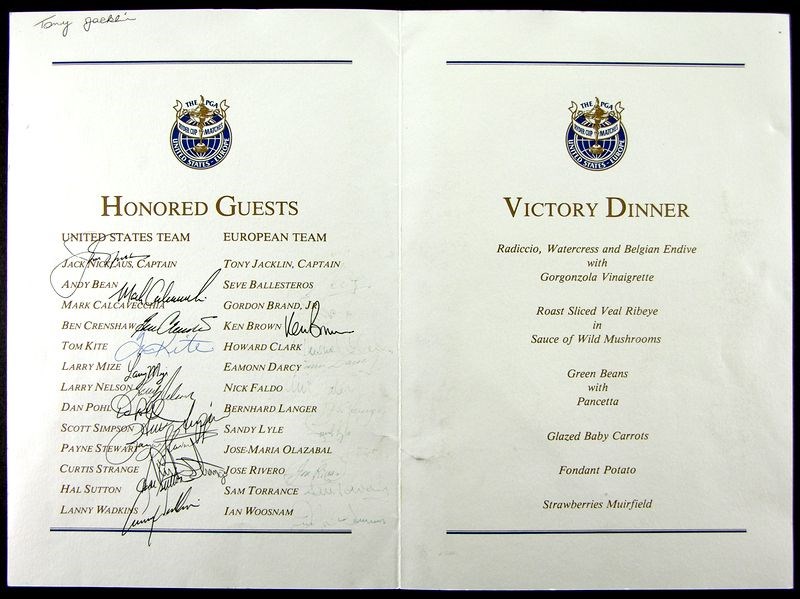 Tony Jacklin
THE PGA
RYDER CUP MATCHES
UNITED STATES - EUROPE
HONORED GUESTS
UNITED STATES TEAM EUROPEAN TEAM
JACK NICKLAUS, CAPTAIN TONY JACKLIN, CAPTAIN
ANDY BEAN SEVE BALLESTEROS
Mark Calcavecchia
MARK CALCAVECCHIA GORDON BRAND, JR.
BEN CRENSHAW Ben Crenshaw KEN BROWN Ken Brown
TOM KITE Tom Kite HOWARD CLARK
LARRY MIZE Larry Mize EAMONN DARCY
LARRY NELSON Larry Nelson NICK FALDO
DAN POHL BERNHARD LANGER
SCOTT SIMPSON SANDY LYLE
PAYNE STEWART JOSE-MARIA OLAZABAL
CURTIS STRANGE JOSE RIVERO
HAL SUTTON Hal Sutton SAM TORRANCE
LANNY WADKINS Lanny Wadkins IAN WOOSNAM
THE PGA
RYDER CUP MATCHES
UNITED STATES - EUROPE
VICTORY DINNER
Radiccio, Watercress and Belgian Endive
with
Gorgonzola Vinaigrette
Roast Sliced Veal Ribeye
in
Sauce of Wild Mushrooms
Green Beans
with
Pancetta
Glazed Baby Carrots
Fondant Potato
Strawberries Muirfield